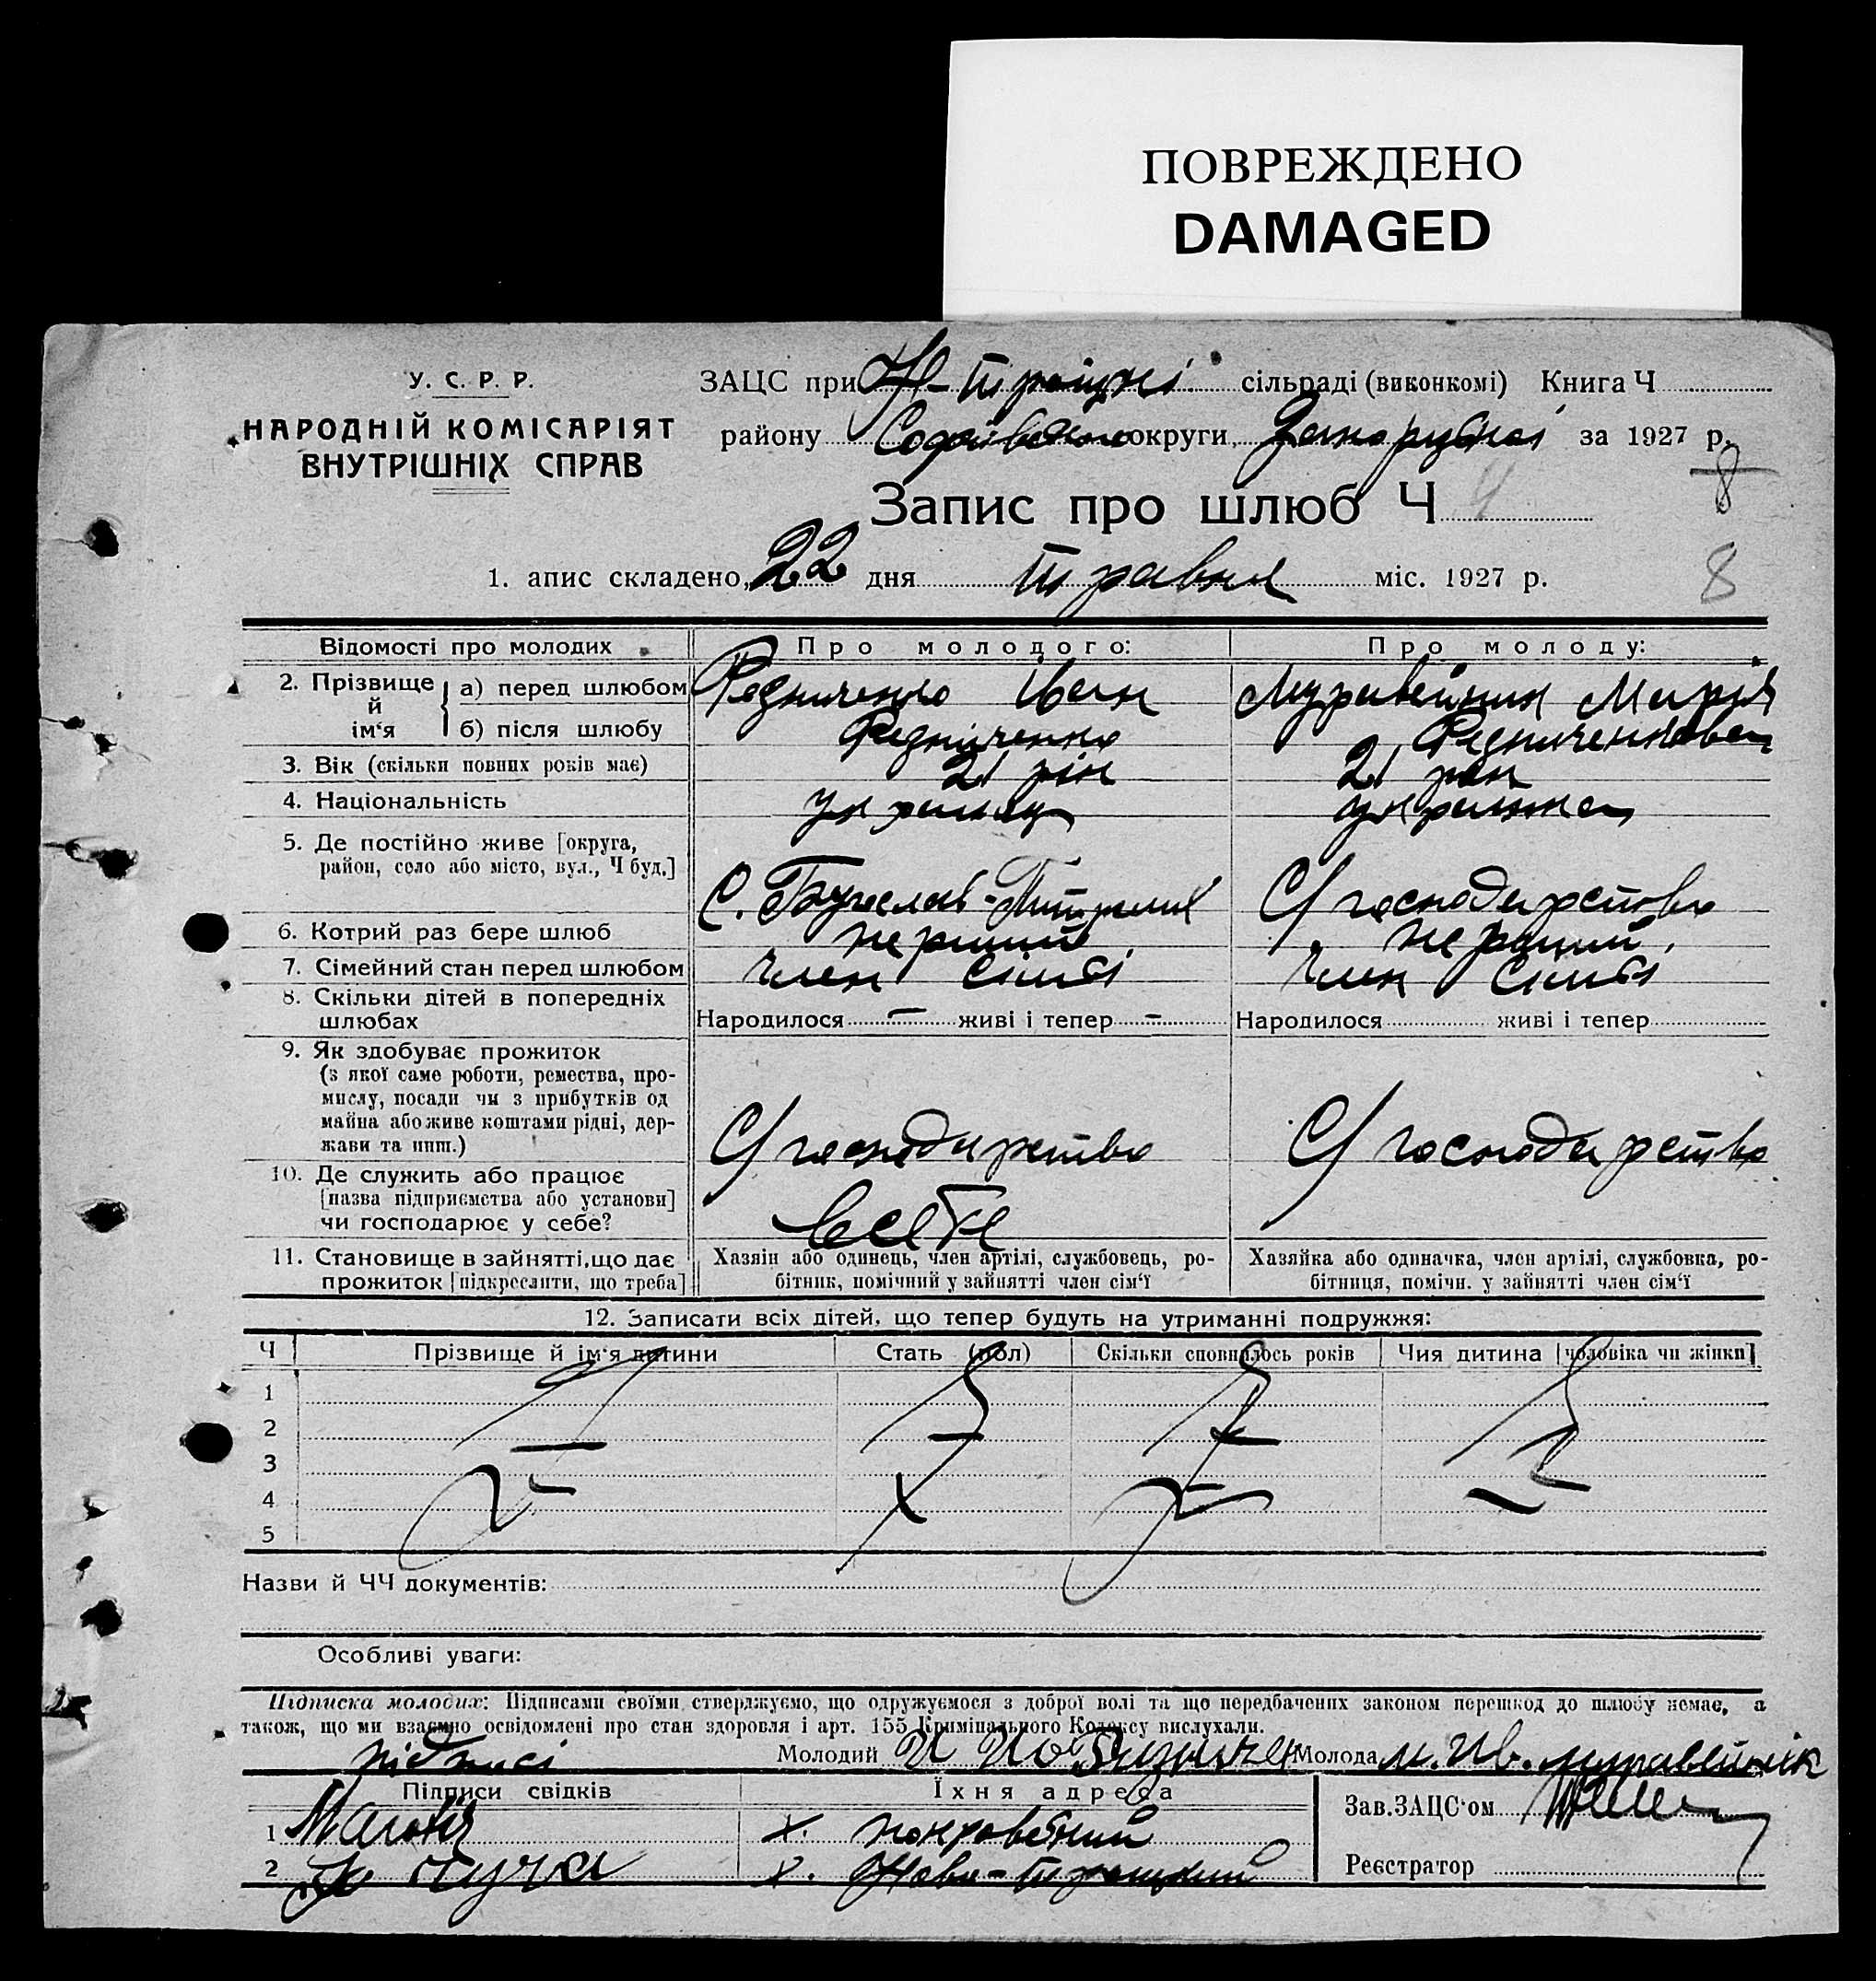 ПОВРЕЖДЕНО
DAMAGED
У. С. Р. Р.
НАРОДНІЙ КОМІСАРІЯТ
ВНУТРІШНІХ СПРАВ
ЗАЦС при Н-Троїцкі сільраді (виконкомі) Книга Ч
району Софіївского округи Запорізкої за 1927 р.
8
Запис про шлюб Ч 4
1. апис складено 22 дня травня міс. 1927 р.
8
Відомості про молодих Про молодого: Про молоду:
2. Прізвище й ім'я а) перед шлюбом Редниченко Іван Муравейник Марія
б) після шлюбу Редниченко Редниченкова
3. Вік (скільки повних років має) 21 рік 21 рік
4. Національність українец українка
5. Де постійно живе [округа,
район, село або місто, вул., Ч буд.] С. С/господарство
6. Котрий раз бере шлюб перший перший
7. Сімейний стан перед шлюбом член сімї член сімї
8. Скільки дітей в попередніх
шлюбах Народилося — живі і тепер — Народилося живі і тепер
9. Як здобуває прожиток
(з якої саме роботи, ремества, про-
мислу, посади чи з прибутків од
майна або живе коштами рідні, дер-
жави та инш.) С/господарство С/господарство
10. Де служить або працює
[назва підприємства або установи]
чи господарює у себе? всебе
11. Становище в зайнятті, що дає Хазяїн або одинець, член артілі, службовець, ро- Хазяйка або одиначка, член артілі, службовка, ро-
прожиток [підкреслити, що треба] бітник, помічний у зайнятті член сім'ї бітниця, помічн. у зайнятті член сім'ї
12. Записати всіх дітей, що тепер будуть на утриманні подружжя:
Ч Прізвище й ім'я дитини Стать (пол) Скільки сповнилось років Чия дитина [чоловіка чи жінки]
1
2
3
4
5
Назви й ЧЧ документів:
Особливі уваги:
Підписка молодих: Підписами своїми стверджуємо, що одружуємося з доброї волі та що передбачених законом перешкод до шлюбу немає, а
також, що ми взаємно освідомлені про стан здоровля і арт. 155 Кримінального Кодексу вислухали.
підписі Молодий Молода М. Ив. Муравейник
Підписи свідків Їхня адреса
1 х. покровський Зав. ЗАЦС'ом
2 х. Ново-Троицкий Реєстратор